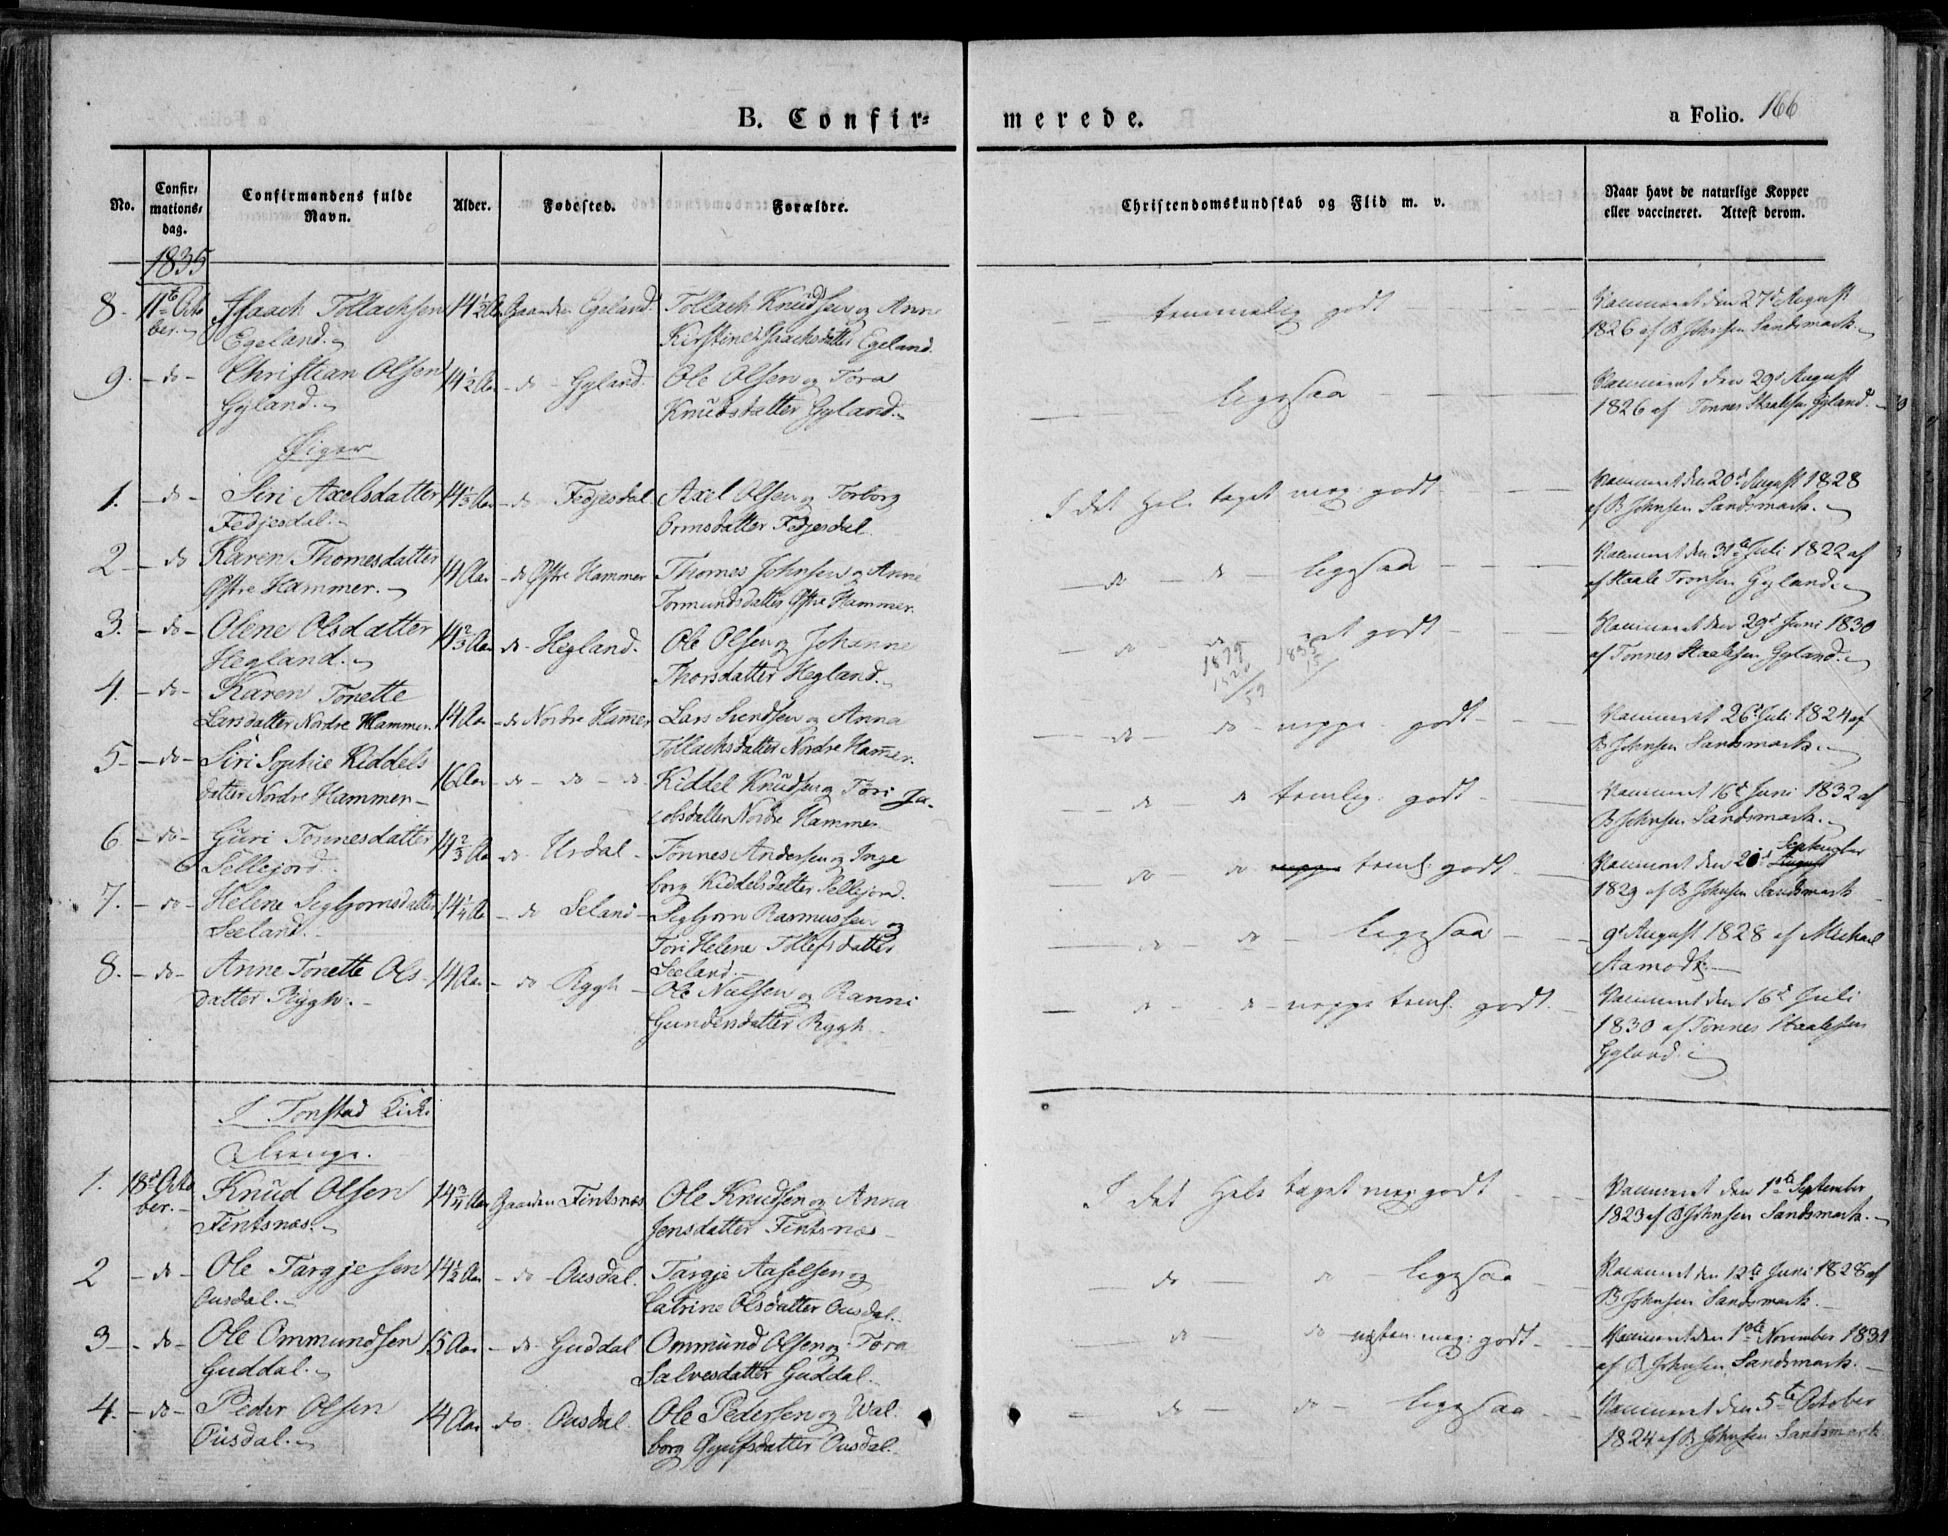 B. Confir-
merede.
a Folio. 166
No.
Confir-
mations-
dag.
Confirmandens fulde
Navn.
Alder.
Fødested.
Forældre.
Christendomskundskab og Flid m. v.
Naar havt de naturlige Kopper
eller vaccineret. Attest derom.
1835
8. 11te Octo Isaach Tollachsen 14 1/2 Aar Gaarden Egeland. Tollach Knudsen og Anne — — temmelig godt — — Vaccineret den 27d August
ber. Egeland. Kirstine Isaachsdatter Egeland. 1826 af B Johnsen Sandsmark.
9. – do – Christian Olsen 14 1/2 Aar – do – Gyland. Ole Olsen og Tora — ligesaa — Vaccineret den 29d August
Gyland. Knudsdatter Gyland. 1826 af Tonnes Staalesen Gyland.
Piger
1. – do – Siri Axelsdatter 14 1/3 Aar – do Fedjesdal Axel Olsen og Torborg I det Hele taget meg: godt — Vaccineret den 20d August 1828
Fedjesdal. Ormsdatter Fedjesdal. af B Johnsen Sandsmark.
2 – do Karen Thomesdatter 14 Aar – do Østre Hammer Thomes Johnsen og Anne — do – do – ligesaa — Vaccineret den 31te Juli 1822 af
Østre Hammer. Tormundsdatter Østre Hammer. af Staale Tronsen Gyland.
3. – do – Olene Olsdatter 14 2/3 Aar do – Hegland. Ole Olsen og Johanne — do – do – godt — Vaccineret den 29d Juni 1830
Hegland. Thorsdatter Hegland. af Tonnes Staalesen Gyland.
1835
15
4. – do – Karen Tonette
Larsdatter Nordre Hammer. 14 Aar – do Nordre Hammer Lars Svendsen og Anna — do – do – neppe godt — Vaccineret 26d Juli 1824 af
Tollachsdatter Nordre Hammer. B Johnsen Sandsmark.
5 – do – Siri Sophie Kiddels
datter Nordre Hammer – 16 Aar – do – do – do Kiddel Knudsen og Tori Ja- — do – do temlig: godt — Vaccineret 16d Juni 1832 af
cobsdatter Nordre Hammer B Johnsen Sandsmark.
6 – do – Guri Tonnesdatter 14 2/3 Aar do – Urdal – Tonnes Andersen og Inge — do – do neppe teml: godt — Vaccineret den 20d August September
Sellejord. borg Kiddelsdatter Sellejord. 1829 af B Johnsen Sandsmark
7. – do – Helene Segbjornsdatter 14 1/4 Aar – do Seland – Segbjorn Rasmussen og — do – do – ligesaa — 9d August 1828 af Michael
Seeland. Tori Helene Tollefsdatter Aamodt.
Seeland.
8. – do – Anne Tonette Ols- 14 Aar – do Rygh – Ole Nielsen og Ranni — do – do – neppe teml. godt. Vaccineret den 16d Juli
datter Rygh. Gundersdatter Rygh. 1830 af Tonnes Staalesen
Gyland.
I Tonstad Kirke
Drenge.
1. 18d Octo Knud Olsen 14 3/4 Aar Gaarden Fintsnæs Ole Knudsen og Anna I det Hele taget meg: godt — Vaccineret den 1ste September
ber. Fintsnæs. Jensdatter Fintsnæs 1823 af B Johnsen Sandsmark.
2 – do – Ole Targjesen 14 1/2 Aar – do – Ousdal. Targje Aselsen og — do — do — ligesaa — Vaccineret den 12te Juni 1828 af
Ousdal. Catrine Olsdatter Ousdal. B Johnsen Sandsmark.
3 – do – Ole Ommundsen 15 Aar – do – Guddal Ommund Olsen og Tora — do — do næsten meg: godt — Vaccineret den 1ste November 1831
Guddal. Salvesdatter Guddal. af B Johnsen Sandsmark.
4. – do – Peder Olsen 14 Aar do. Ousdal. Ole Pedersen og Wal — do — do — ligesaa — Vaccineret den 5te October
Ousdal. borg Ousdal. 1824 af B Johnsen Sandsmark